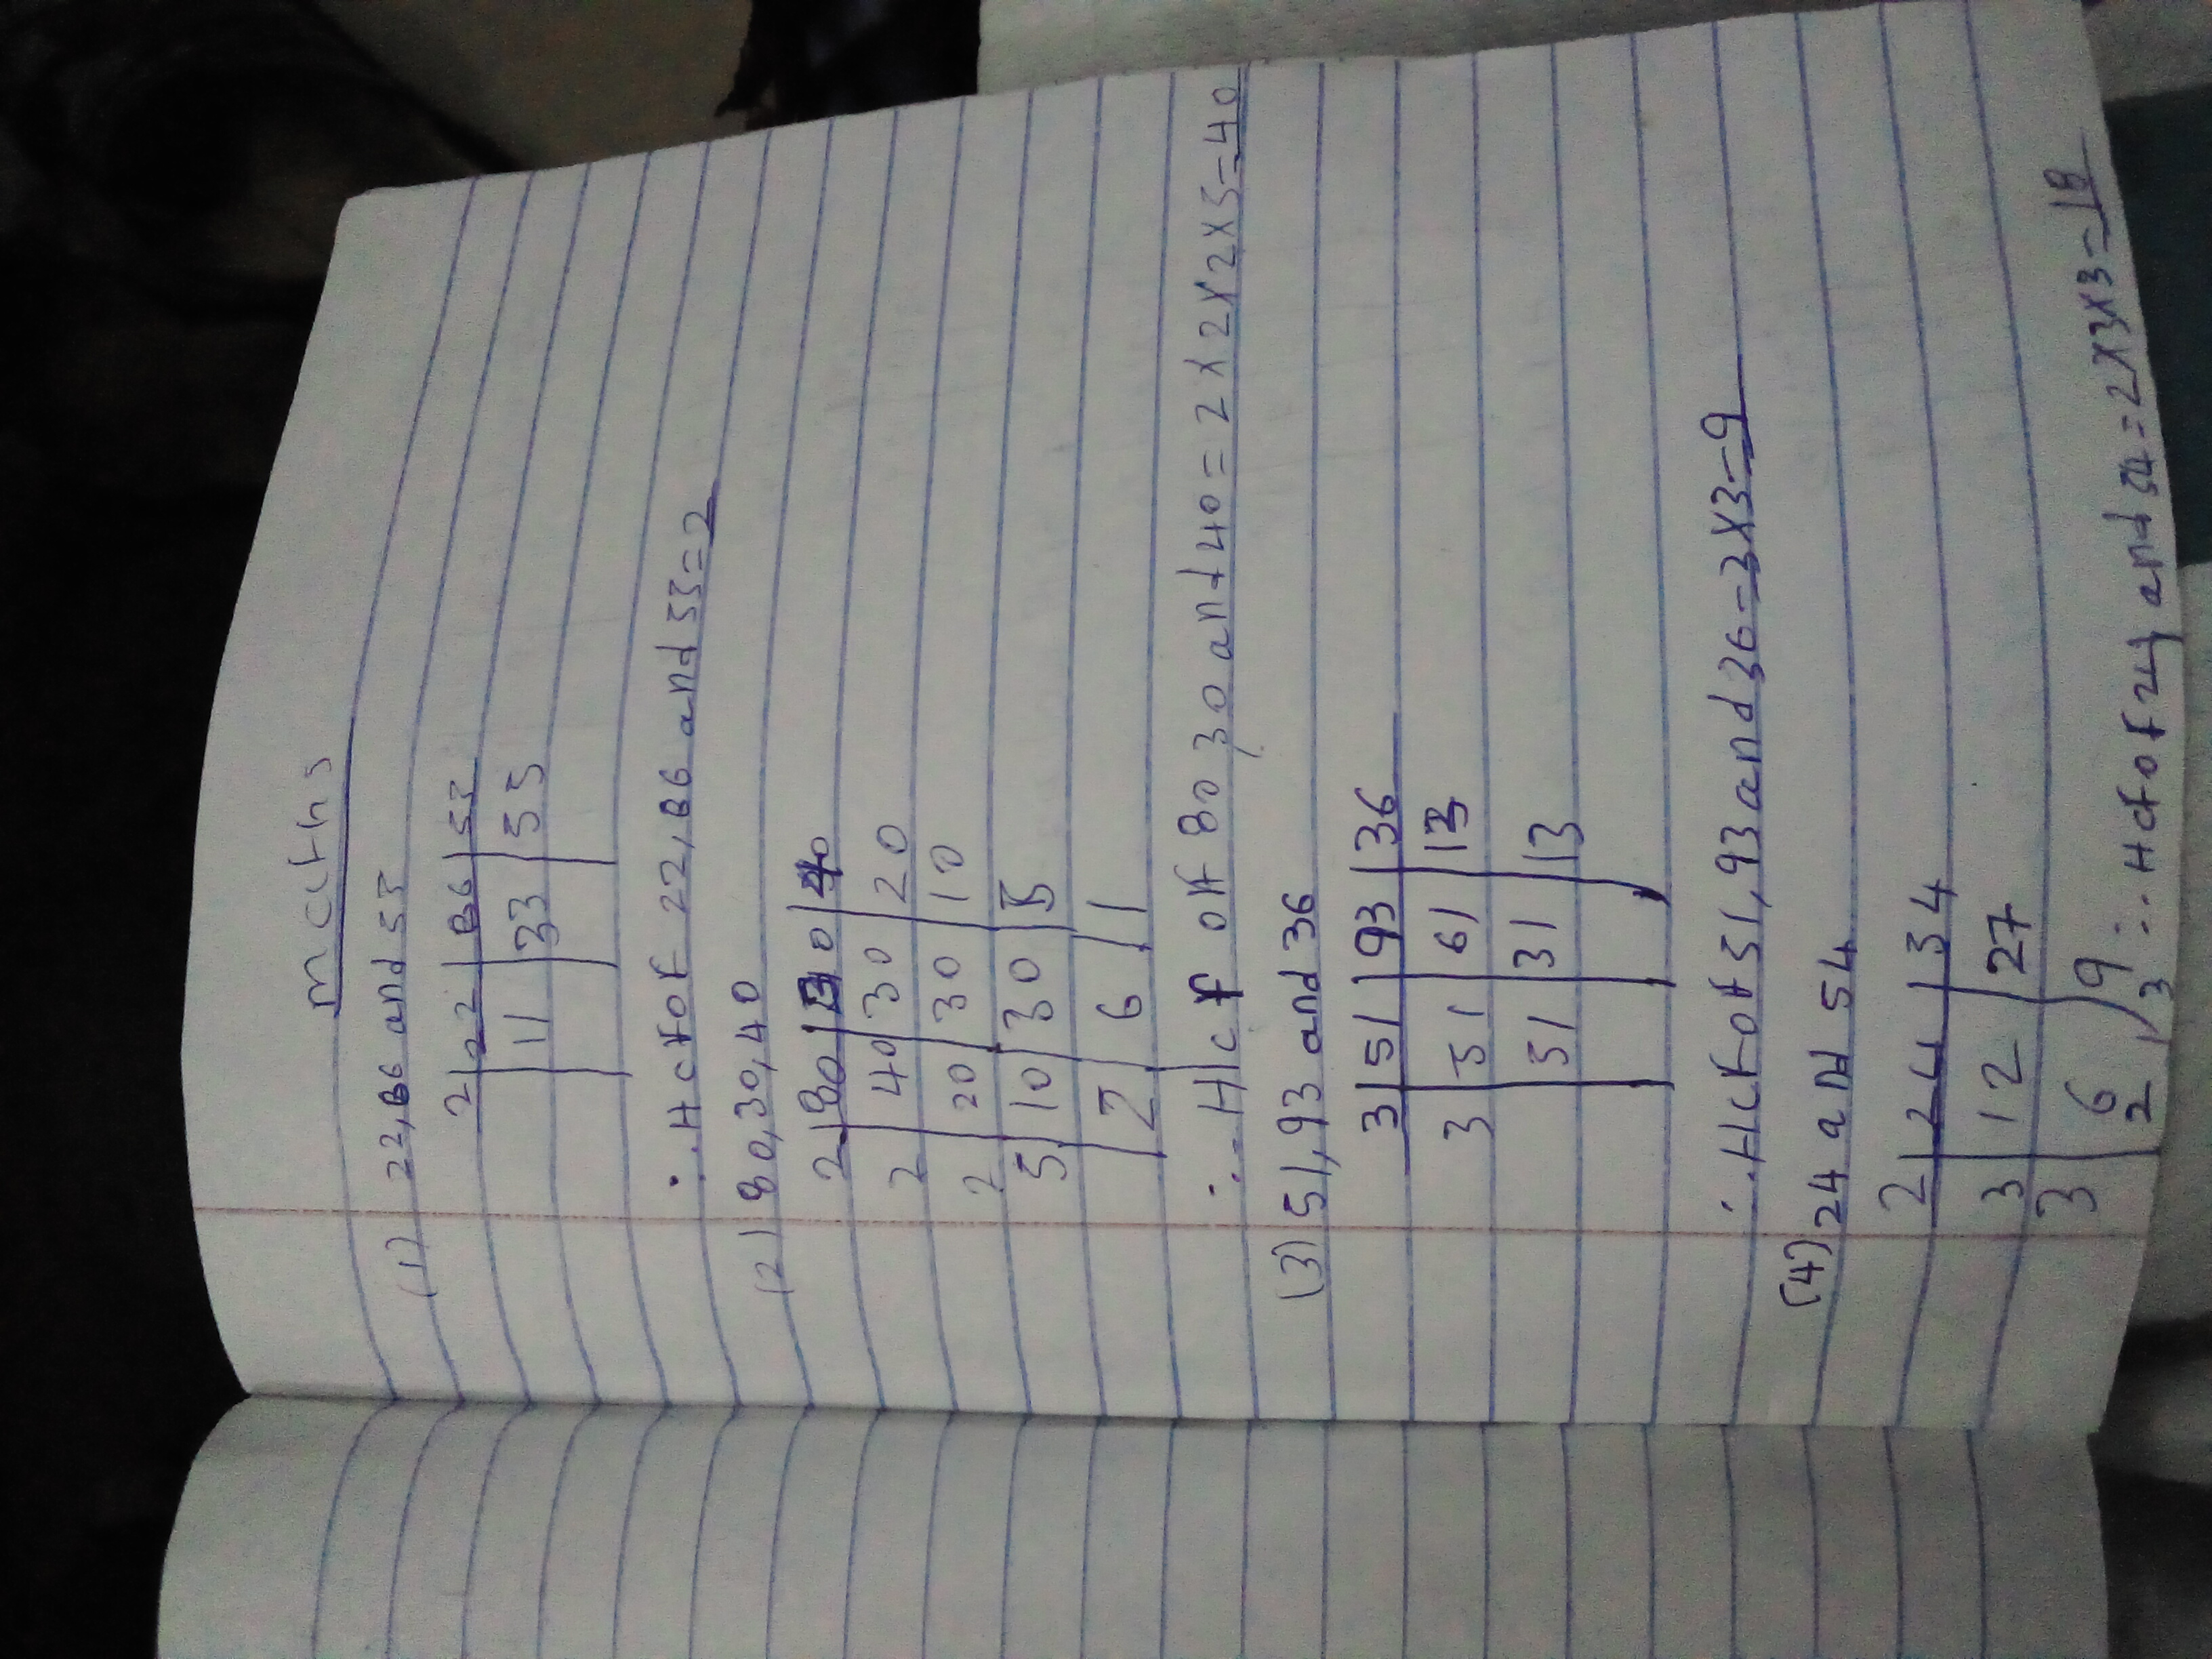 Maths
(1) 22,66 and 55
2 | 22 | 66 | 55
11 | 33 | 55
∴ HCF OF 22,66 and 55=2
(2) 80,30,40
2 | 80 | 30 | 40
2 | 40 | 30 | 20
2 | 20 | 30 | 10
5 | 10 | 30 | 5
2 | 6 | 1
∴ HCF of 80 30 and 40 = 2 X 2 X 2 X 5 = 40
(3) 51,93 and 36
3 | 51 | 93 | 36
3 | 51 | 61 | 13
51 | 31 | 13
∴ HCF of 51,93 and 36=3X3=9
(4) 24 and 54
2 | 24 | 34
3 | 12 | 27
3 | 6 | 9
2 | 3 ∴ HCF OF 24 and 54 = 2 X 3 X 3 = 18